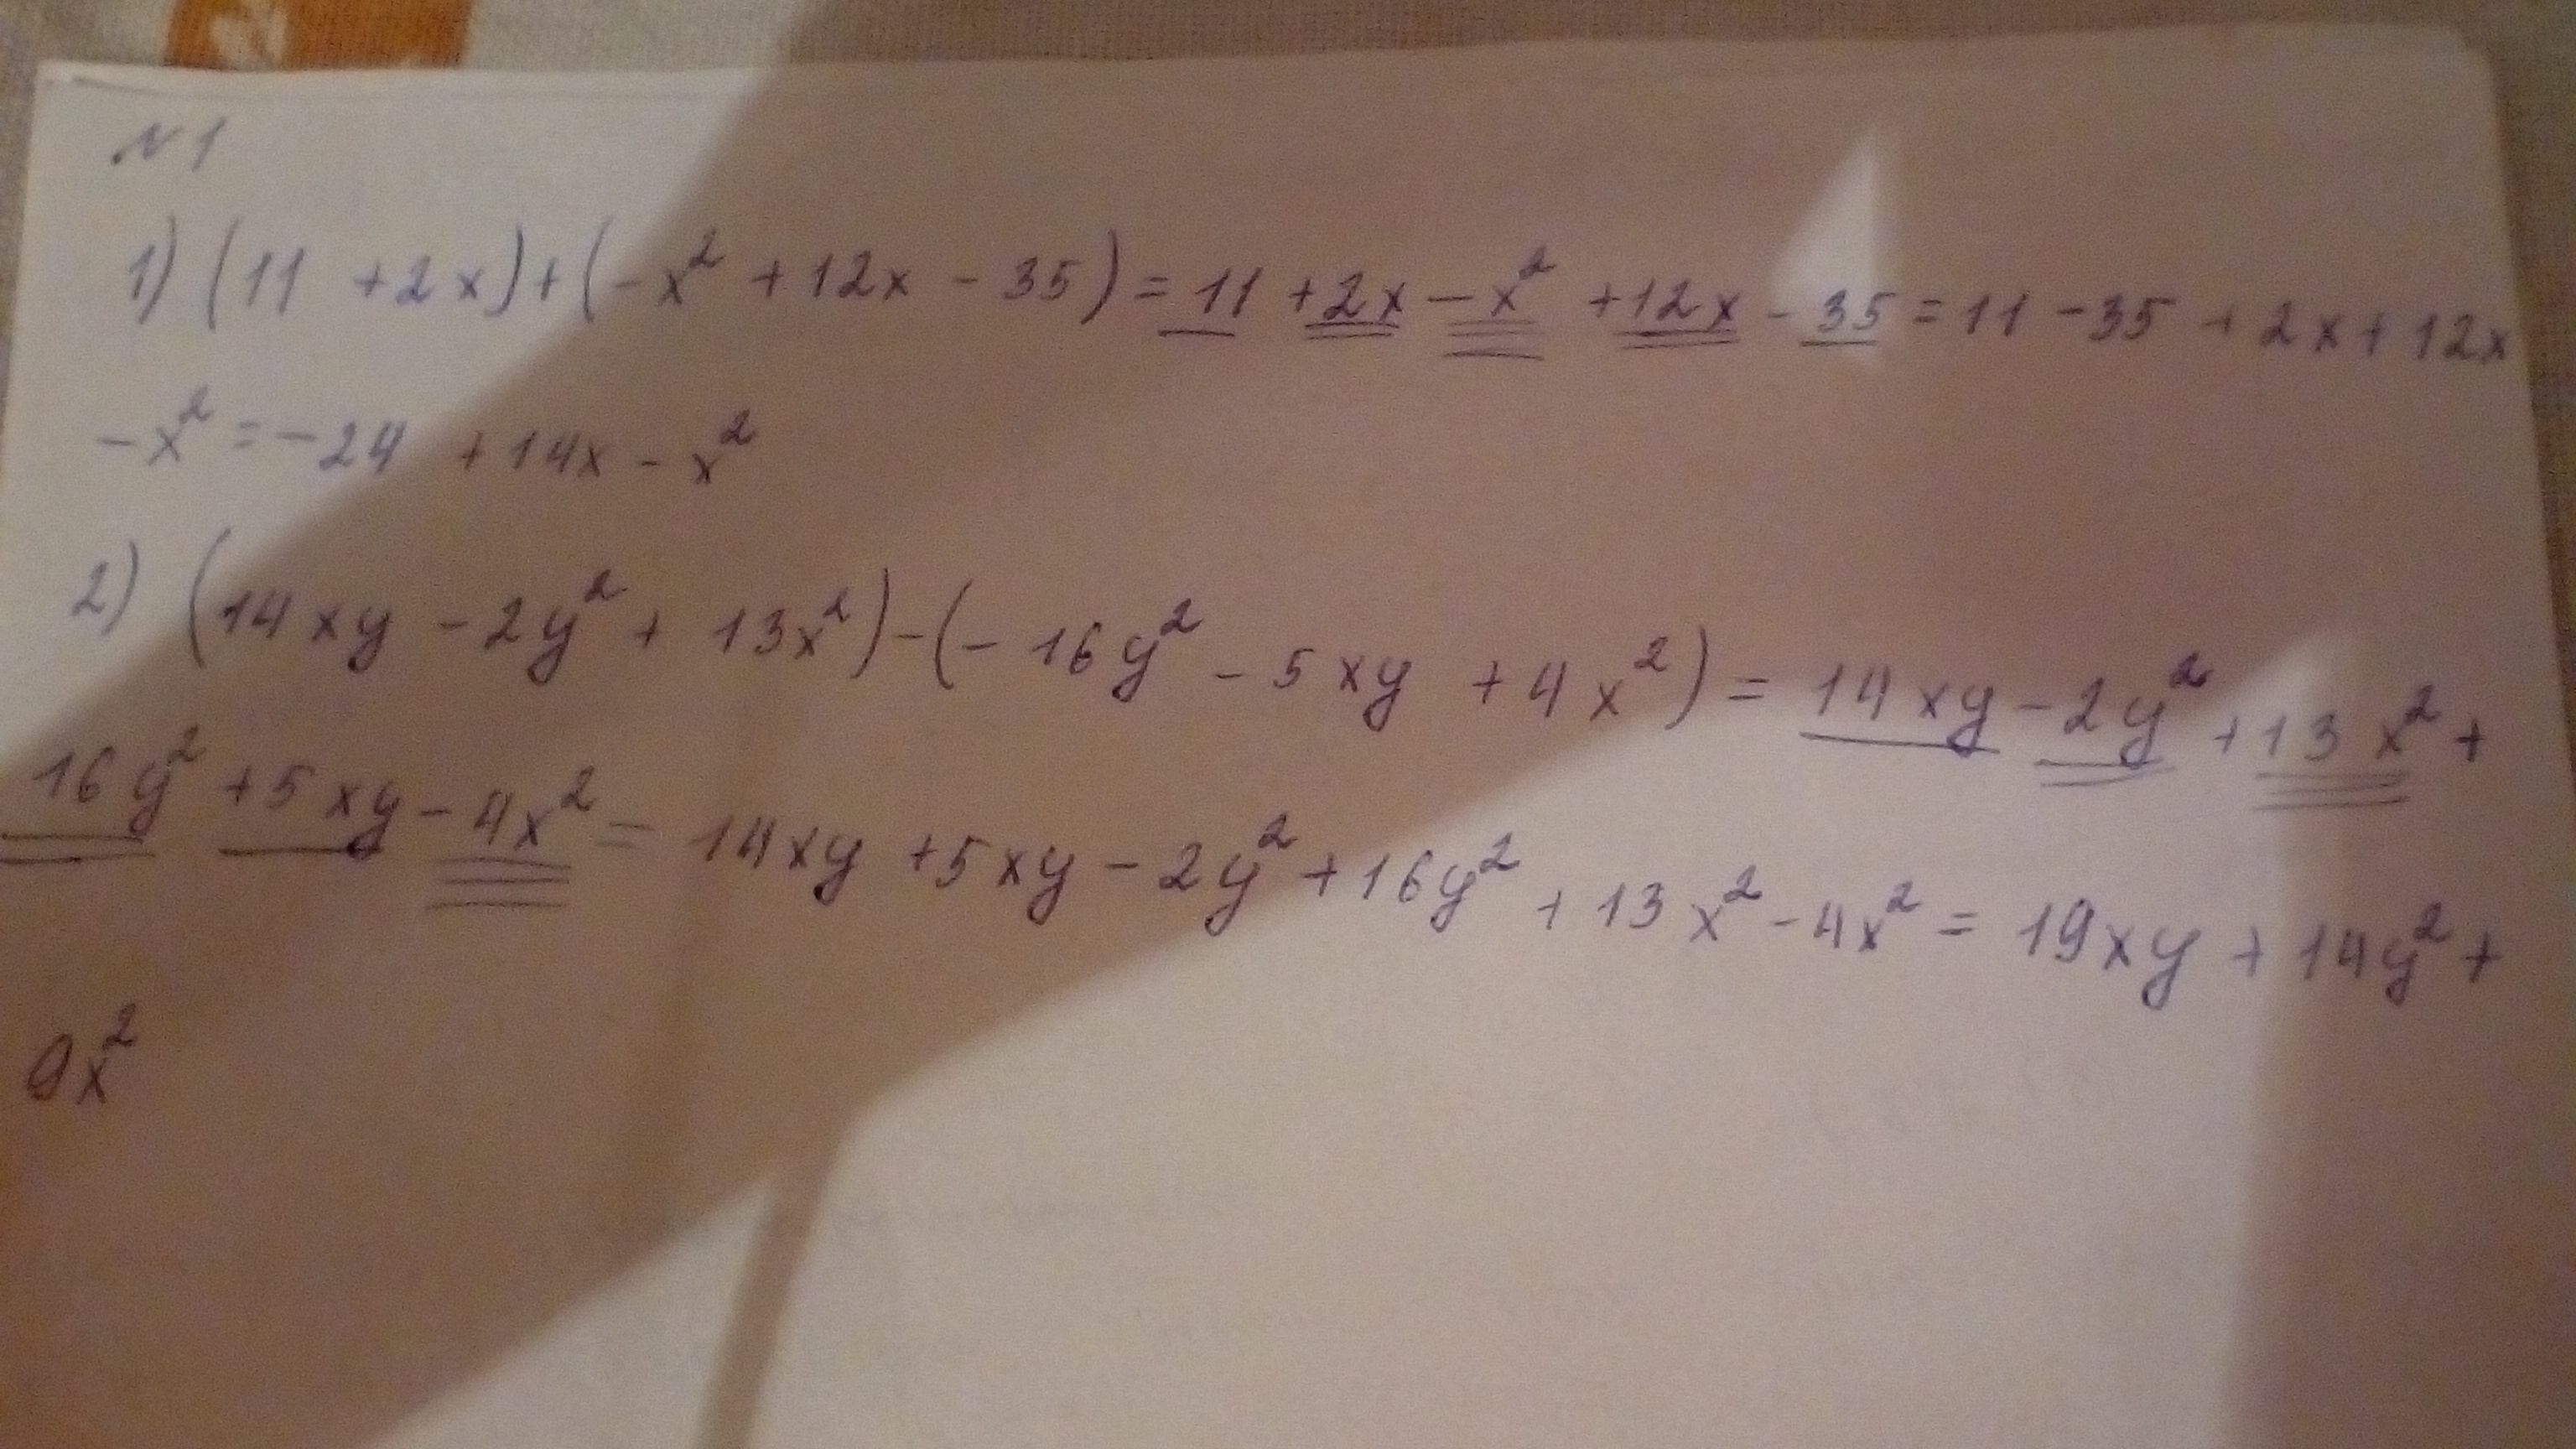 №1
1) (11 + 2x) + (-x² + 12x - 35) = 11 + 2x - x² + 12x - 35 = 11 - 35 + 2x + 12x
- x² = -24 + 14x - x²
2) (14xy - 2y² + 13x²) - (-16y² - 5xy + 4x²) = 14xy - 2y² + 13x² +
16y² + 5xy - 4x² = 14xy + 5xy - 2y² + 16y² + 13x² - 4x² = 19xy + 14y² +
9x²